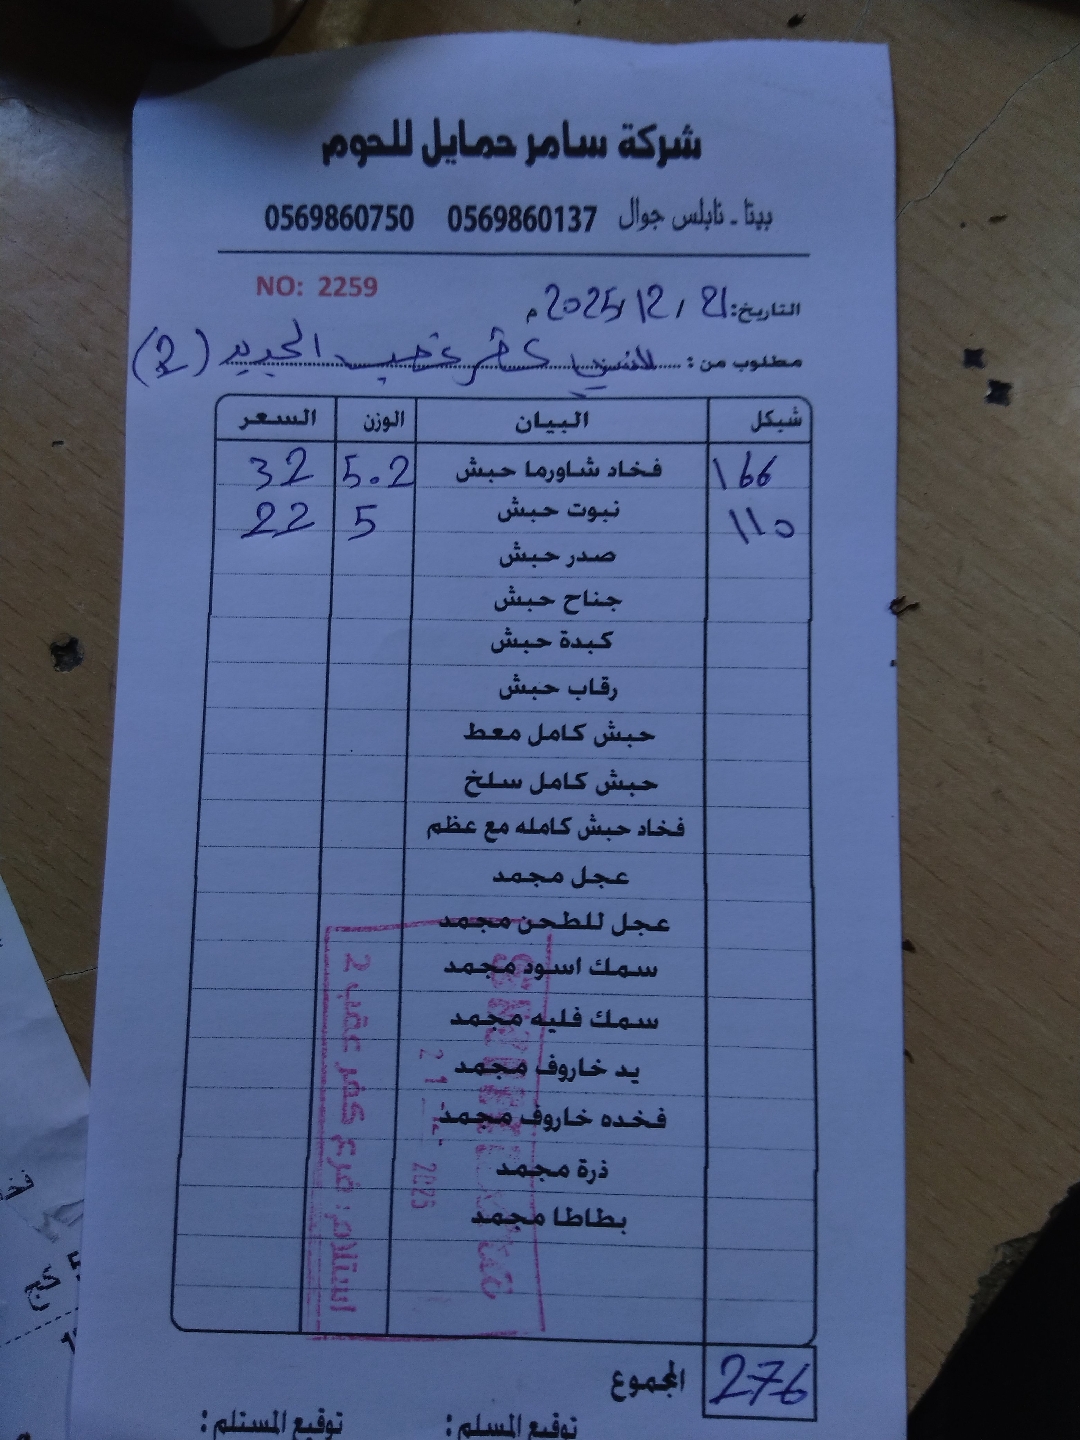 شركة سامر حمايل للحوم
بيتا - نابلس جوال 0569860137 0569860750
NO: 2259
التاريخ: 21 / 12 / 2025 م
مطلوب من: كفر عقب الجديد (2)
شيكل البيان الوزن السعر
166 فخاد شاورما حبش 5.2 32
110 نبوت حبش 5 22
صدر حبش
جناح حبش
كبدة حبش
رقاب حبش
حبش كامل معط
حبش كامل سلخ
فخاد حبش كامله مع عظم
عجل مجمد
عجل للطحن مجمد
سمك اسود مجمد
سمك فليه مجمد
يد خاروف مجمد
فخده خاروف مجمد
ذرة مجمد
بطاطا مجمد
استلام: فرع كفر عقب 2
المجموع 276
توقيع المسلم : توقيع المستلم :